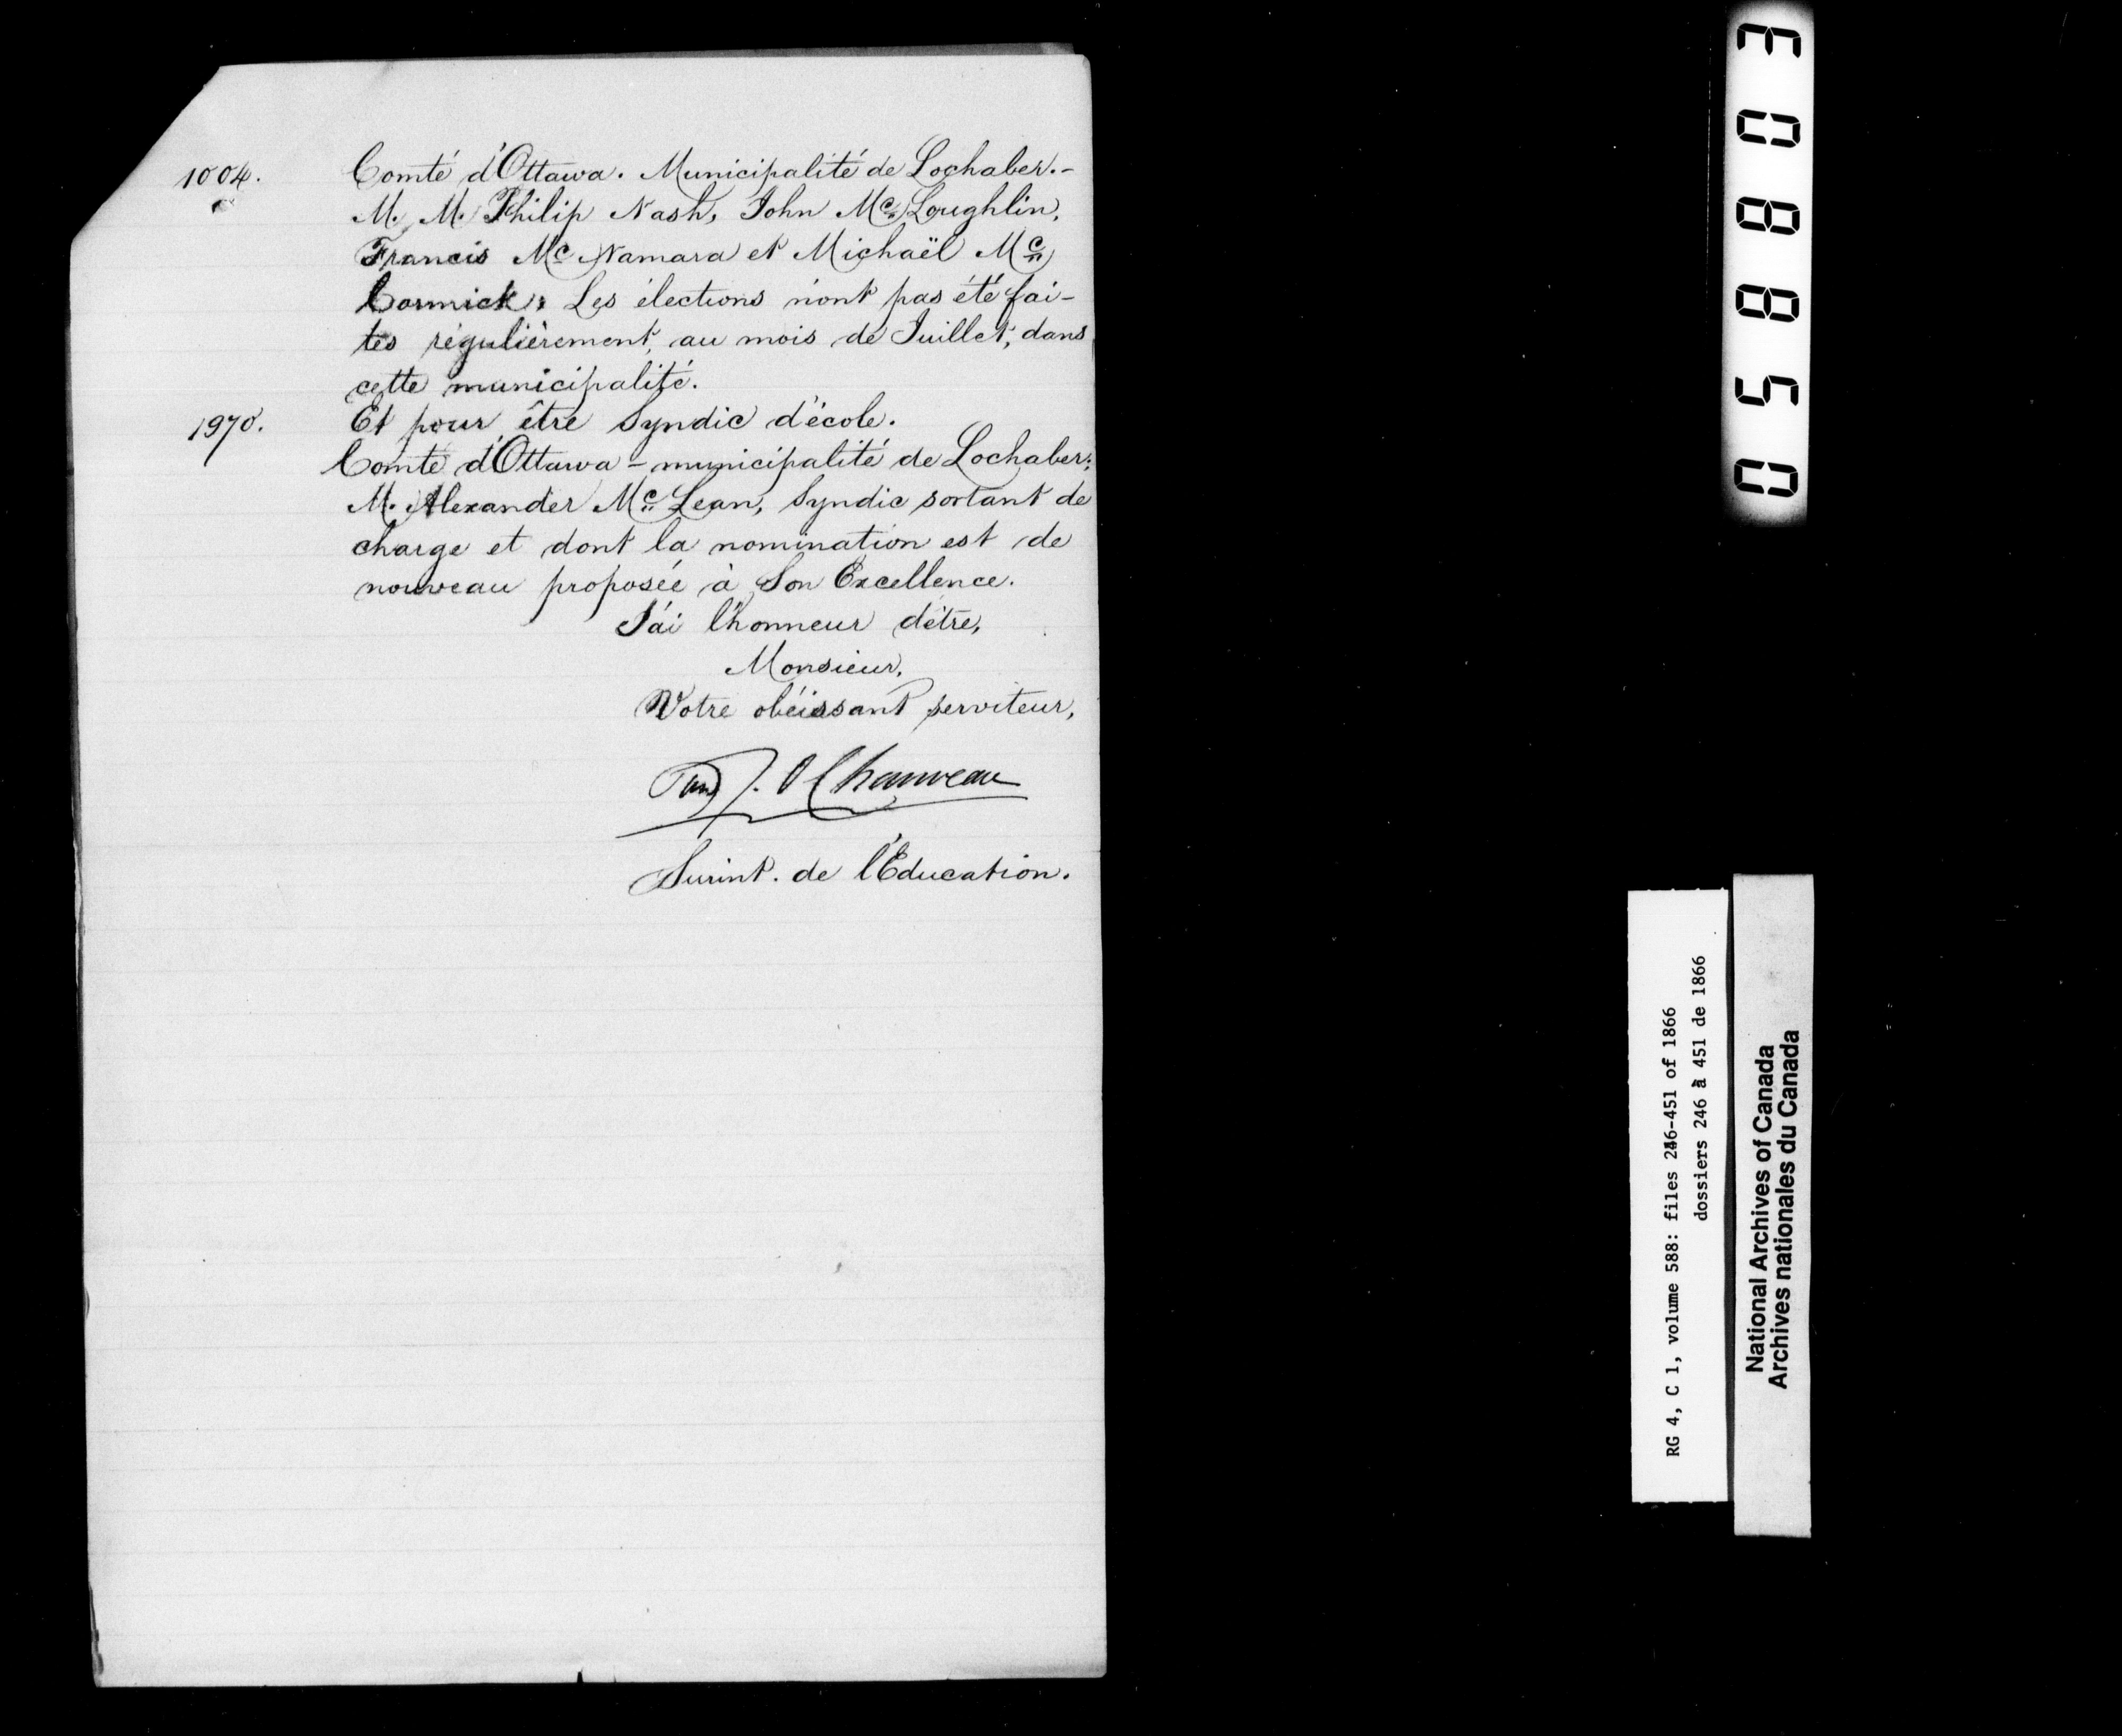 1004. Comté d'Ottawa. Municipalité de Lochaber.-
M. M. Philip Nash, John Mc Loughlin,
Francis Mc Namara et Michaël Mc
Cormick; Les élections n'ont pas été fai-
tes régulièrement, au mois de Juillet, dans
cette municipalité.
1970. Et pour être Syndic d'école.
Comté d'Ottawa - municipalité de Lochaber;
M. Alexander Mc Lean, Syndic sortant de
charge et dont la nomination est de
nouveau proposée à Son Excellence.
J'ai l'honneur d'être,
Monsieur,
Votre obéissant serviteur,
J. O Chauveau
Surint. de l'Éducation.
RG 4, C 1, volume 588: files 246-451 of 1866
dossiers 246 à 451 de 1866
National Archives of Canada
Archives nationales du Canada
058803